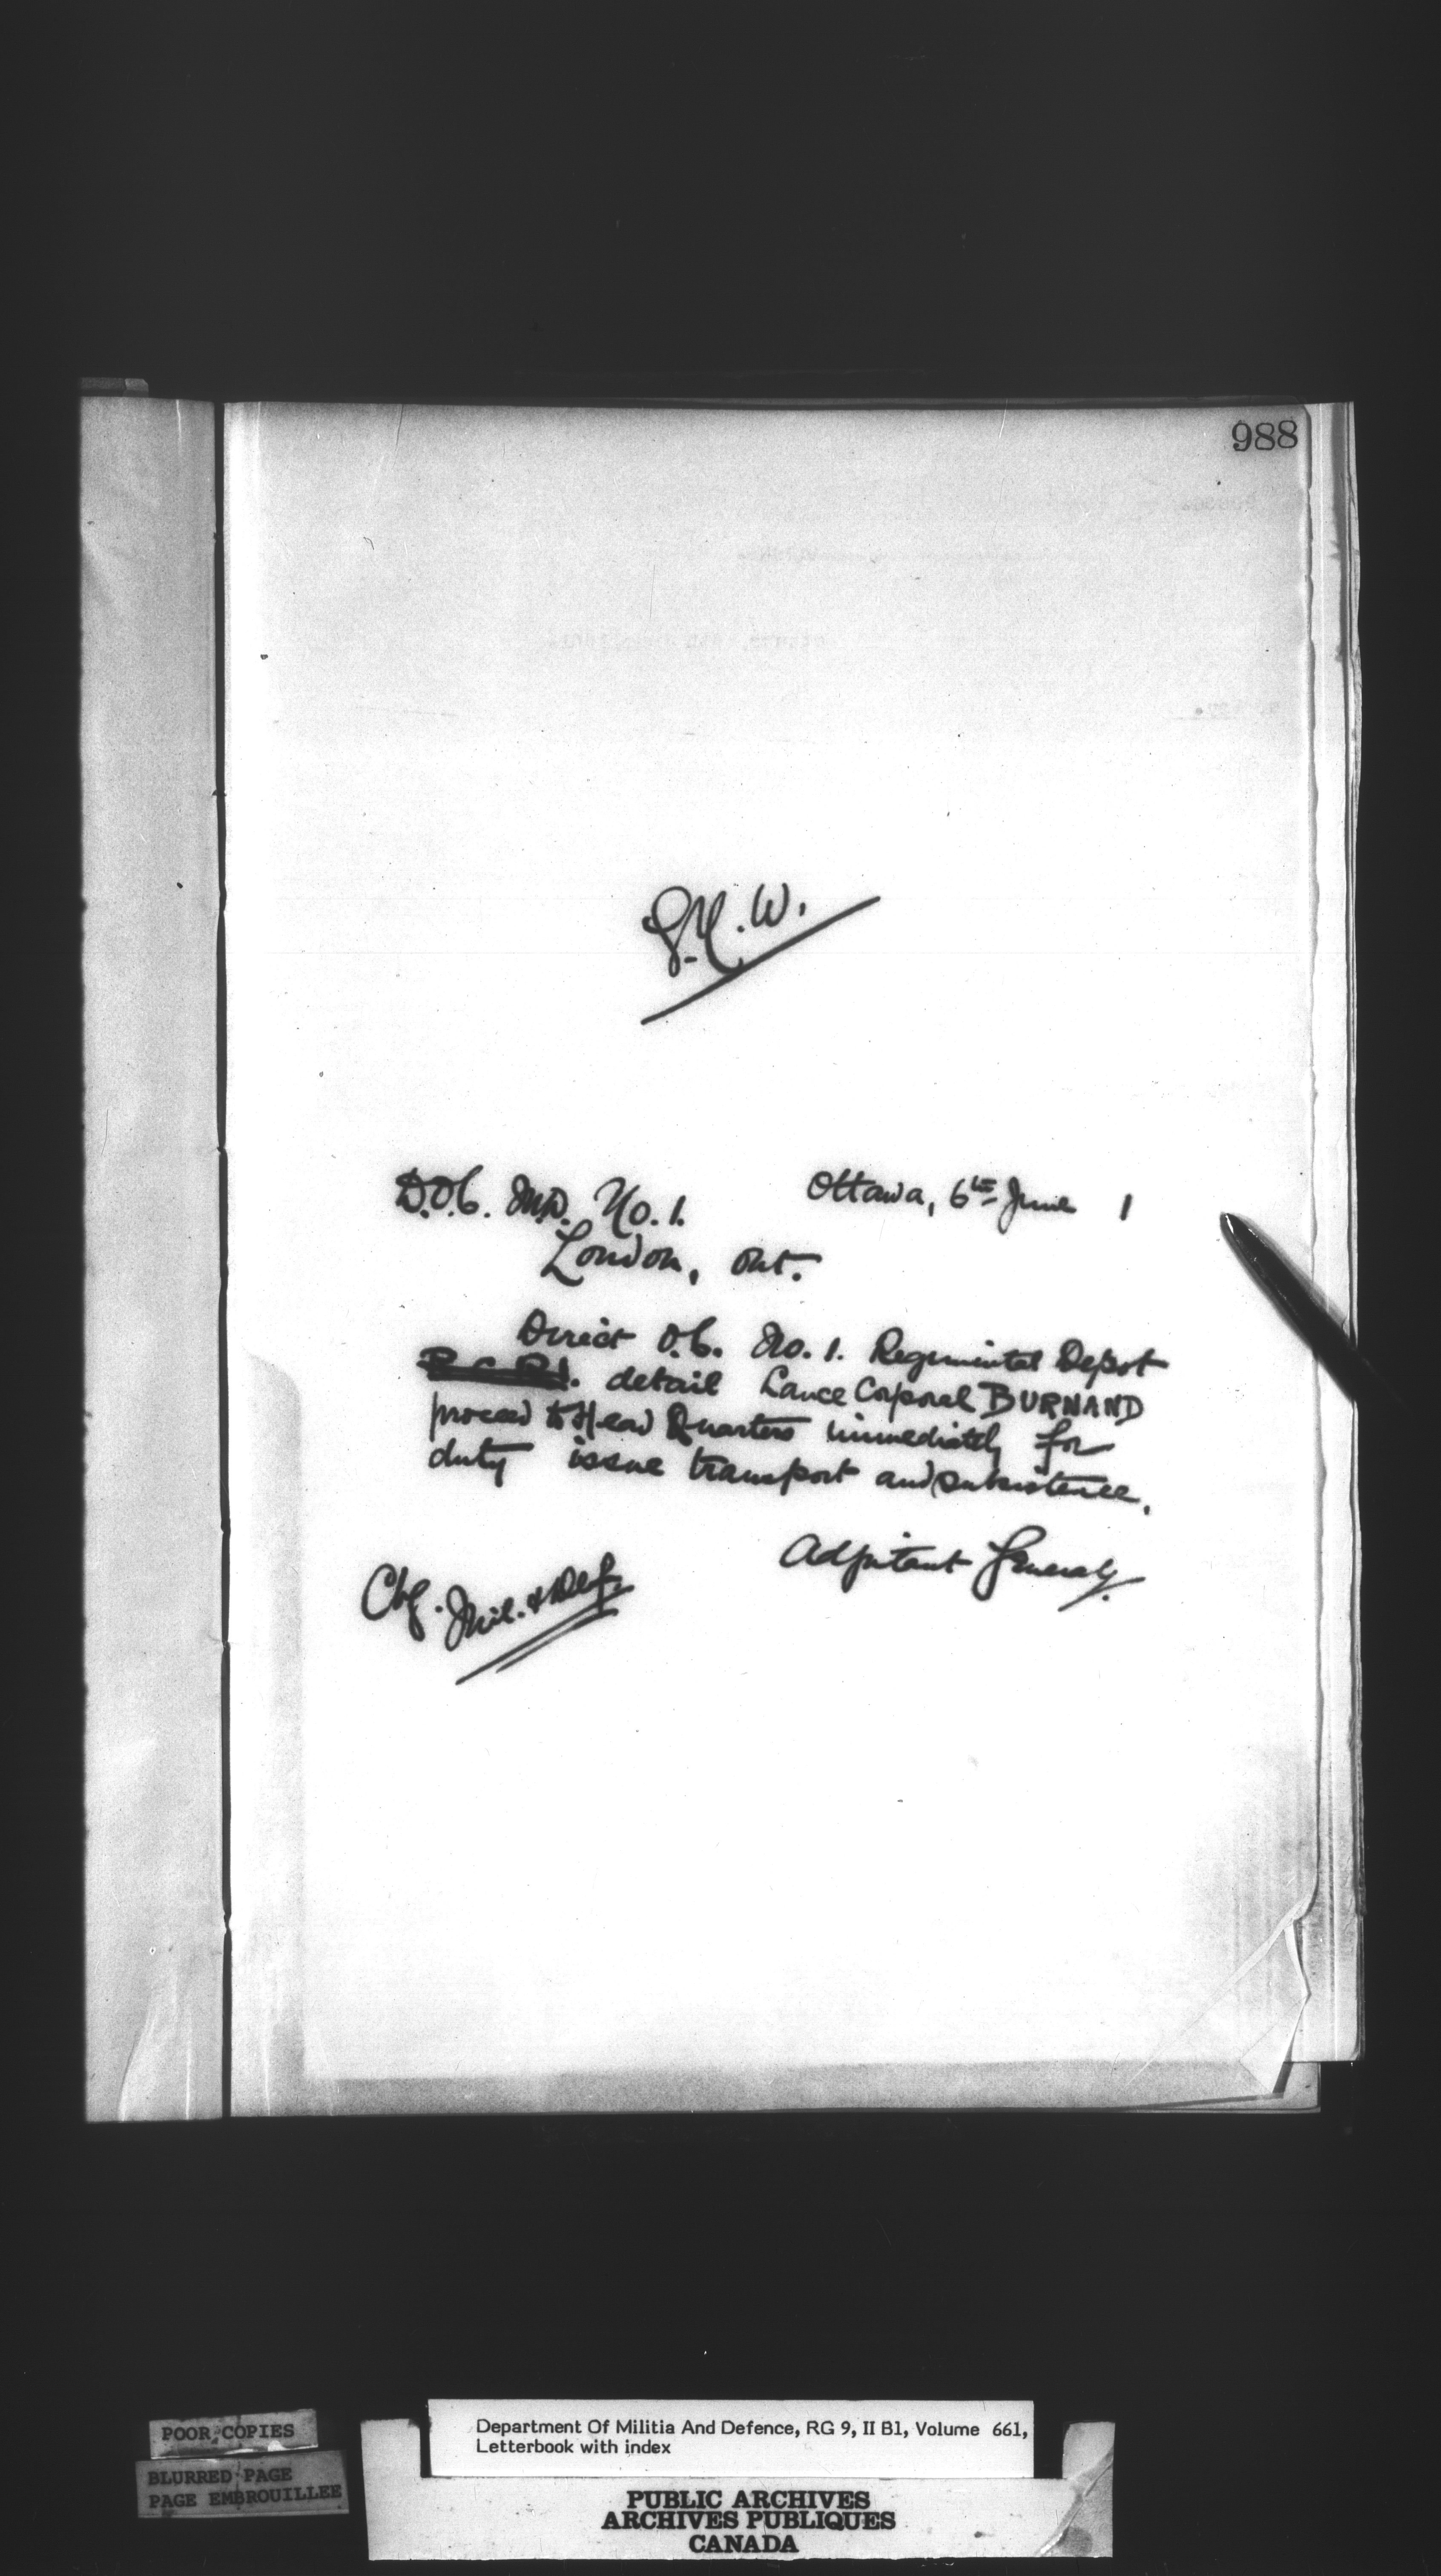 988
G.N.W.
D.O.C. M.D. No. 1. Ottawa, 6th June 1
London, Ont.
Direct O.C. No. 1. Regimental Depot
R.C.R.I. detail Lance Corporal BURNAND
proceed to Head Quarters immediately for
duty issue transport and subsistence.
Adjutant General.
Chg. Mil. & Def.
POOR COPIES
BLURRED PAGE
PAGE EMBROUILLEE
Department Of Militia And Defence, RG 9, II B1, Volume 661,
Letterbook with index
PUBLIC ARCHIVES
ARCHIVES PUBLIQUES
CANADA